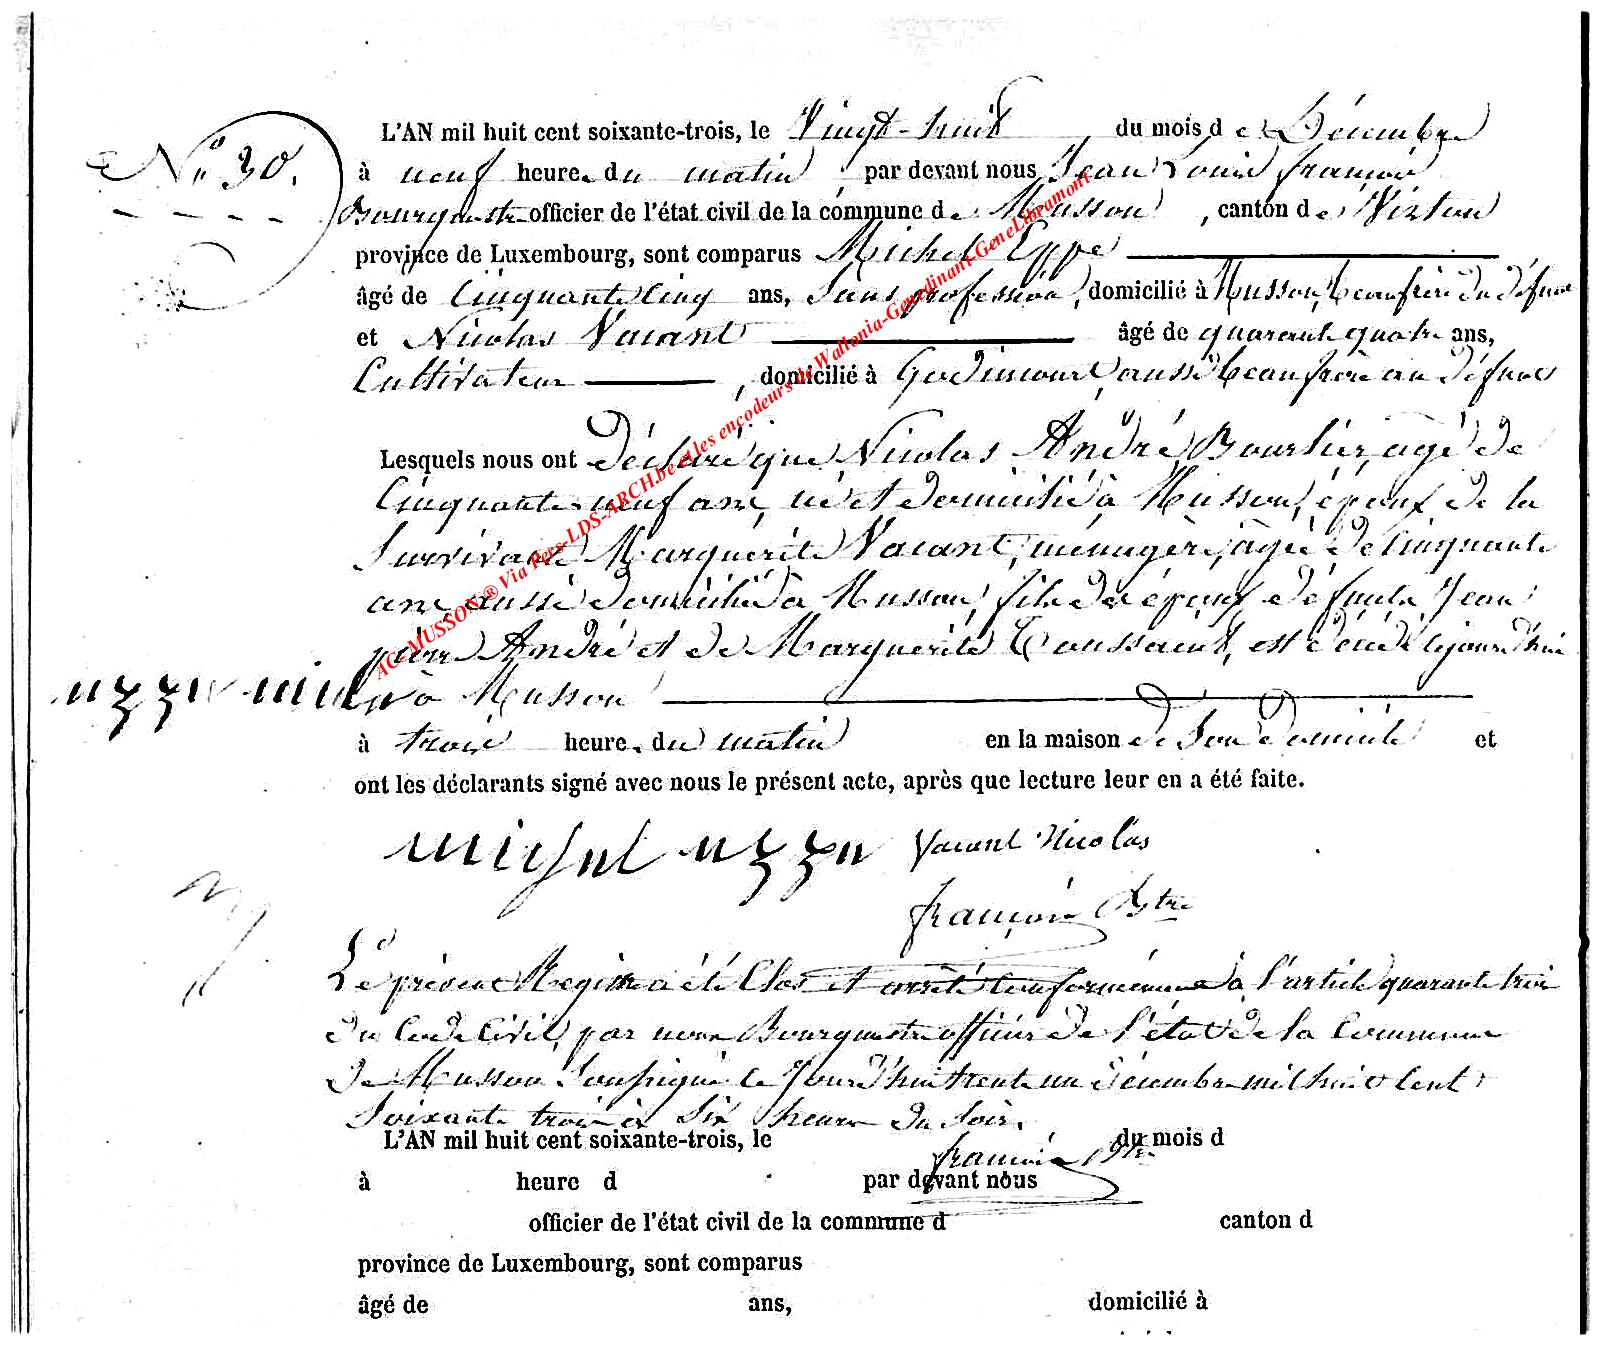 N° 30.
L'AN mil huit cent soixante-trois, le Vingt-huit du mois de Décembre
à neuf heure du matin par devant nous Jean Louis françois
Bourgmestre officier de l'état civil de la commune de Musson, canton de Virton
province de Luxembourg, sont comparus Michel Eppe
âgé de Cinquante Cinq ans, Sans profession, domicilié à Musson, beaufrère du défunt
et Nicolas Vacant âgé de quarante quatre ans,
Cultivateur, domicilié à Godincourt, aussi beaufrère au défunt
Lesquels nous ont déclaré que Nicolas André Bourlier, agé de
Cinquante-neuf ans, né et domicilié à Musson, époux de la
Survivante Marguerite Vacant, ménagère, âgée de Cinquante
ans, aussi domicilié à Musson, fils des époux défunts Jean
pierre André et de Marguerite Toussaint, est décédé cejourd'hui
à Musson
à trois heure du matin en la maison de Son domicile et
ont les déclarants signé avec nous le présent acte, après que lecture leur en a été faite.
Vacant Nicolas
françois Bstre
Le présent Registre a été Clos et arrêté conformément à l'article quarante trois
du Code Civil, par nous Bourgmestre officier de l'état de la Commune
de Musson Soussigné le Jourd'hui trente un décembre mil huit Cent
Soixante trois à Six heures du Soir.
L'AN mil huit cent soixante-trois, le du mois d
françois Bstre
à heure d par devant nous
officier de l'état civil de la commune d canton d
province de Luxembourg, sont comparus
âgé de ans, domicilié à
AC-MUSSON ® Via Pers-LDS-ARCH.be et les encodeurs de Wallonia-Genedinant-GeneLibramont